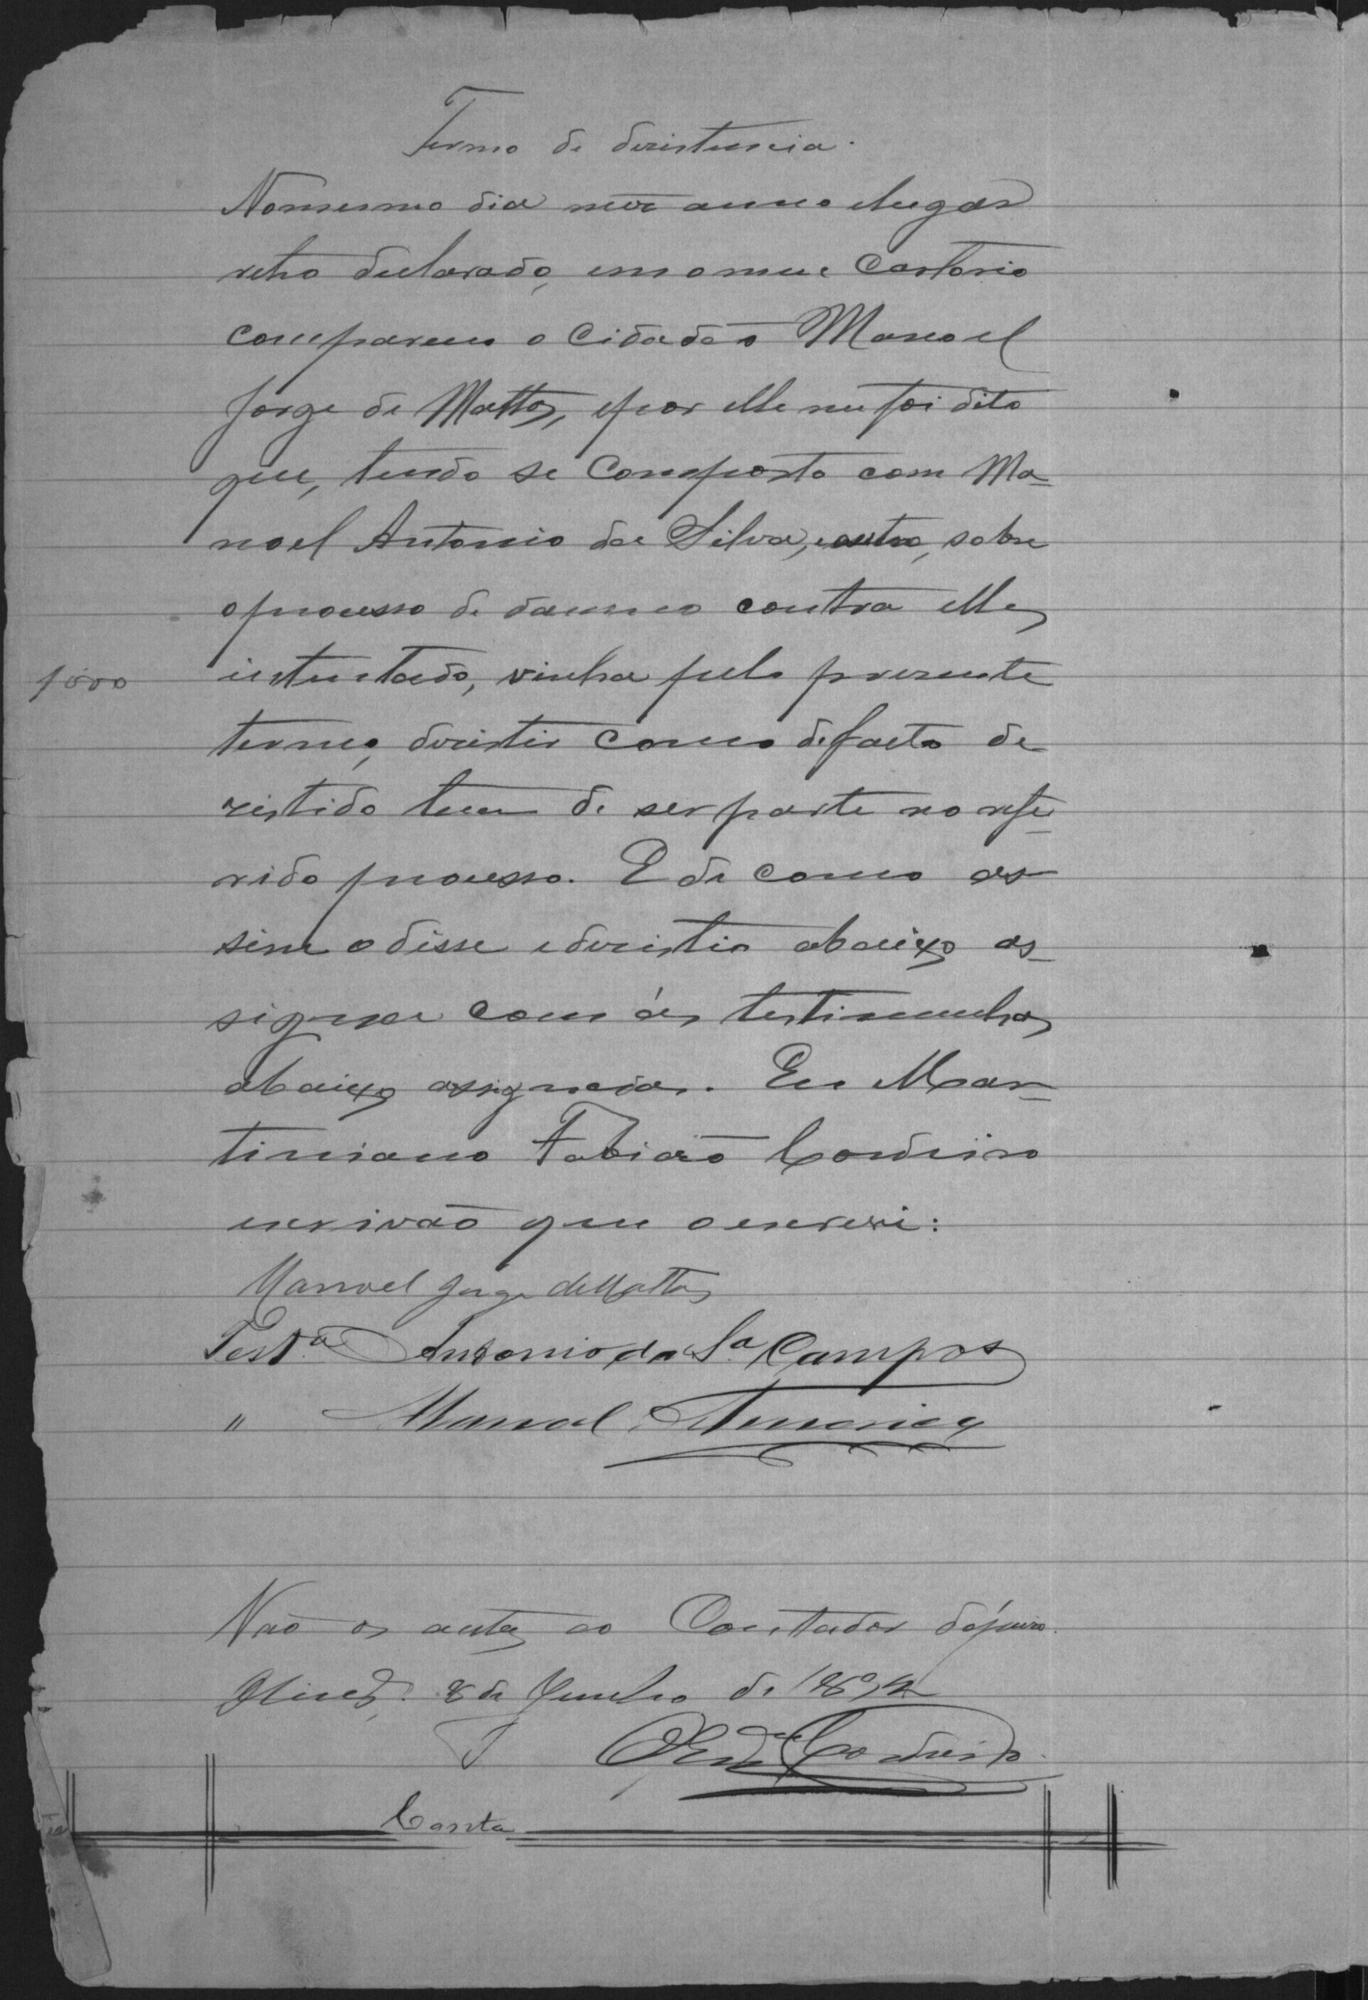 Termo de dezistencia.
No mesmo dia mez anno e lugar
retro declarado, em o meu Cartorio
compareceu o Cidadão Manoel
Jorge de Mattos, e por elle me foi dito
que, tendo se Composto com Ma-
noel Antonio da Silva, e outro, sobre
o processo de damno contra elles
intentado, vinha pelo prezente
1000
termo, dezistir como de facto de
zistido tem de ser parte no refe-
rido processo. E de como as
sim o disse e dezistio abaixo as-
signa com ás testimunhas
abaixo assignadas. Eu Mar-
tiniano Fabião Cordeiro
escrivão que o escrevi:
Manoel Jorge de Mattos
Test.a Antonio da S.a Campos
" Manoel Americo
Vão os autos ao Contador do juizo.
8 de Junho de 1892
Cordeiro
Conta